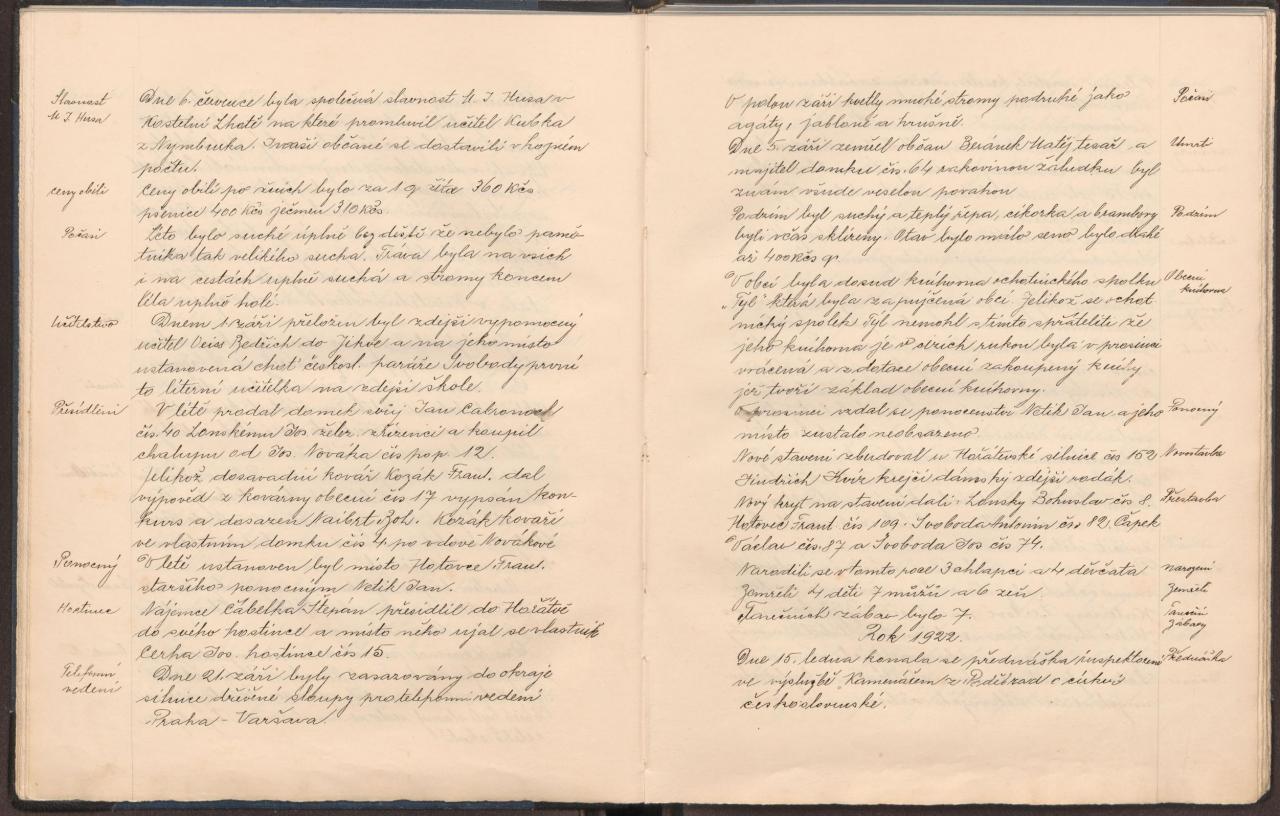 Slavnost
M J. Husa
Dne 6. července byla společná slavnost M. J. Husa v
Kostelní Lhotě na které promluvil učitel Kubka
z Nymburka. Zvaší občané se dostavili v hojném
počtu.
ceny obilí
Ceny obilí po žních bylo za 1 q žita 360 Kčs
pšenice 400 Kčs ječmen 310 Kčs.
Počasí
Léto bylo suché úplně bez deště že nebylo pamě-
tníka tak velikého sucha. Tráva byla na vsích
i na cestách uplně suchá a stromy koncem
léta uplně holé.
Učitelstvo
Dnem 1 září přeložen byl zdejší vypomocný
učitel Veiss Bedřich do Jíkve a na jeho místo
ustanovena choť českosl. faráře Svobody první
to literní učitelka na zdejší škole.
Přesídlení
V létě prodal domek svůj Jan
čís. 40 Lonskému Jos želez. zřízenci a koupil
chalupu od Jos. Nováka čís pop. 12.
Jelikož dosavadní kovář Kozák Frant. dal
výpověď z kovárny obecní čís 17 vypsán kon-
kurs a dosazen Naibrt Boh. Kozák kovaří
ve vlastním domku čís 4 po vdově Novákové
Ponocný
V létě ustanoven byl místo Hotovce Frant.
staršího ponocným Netík Jan.
Hostince
Nájemce Čábelka Štěpán přesídlil do Hořátve
do svého hostince a místo něho ujal se vlastník
Cerha Jos. hostince čís 15.
Telefonní
vedení
Dne 21. září byly zasazovány do okraje
silnice dřevěné sloupy pro telefonní vedení
Praha - Varšava.
V polou září kvetly mnohé stromy podruhé jako
agáty, jabloně a hrušně.
Počasí
Dne 5. září zemřel občan Beránek Matěj tesař a
Úmrtí
majitel domku čís. 64 rakovinou žaludku byl
znám všude veselou povahou
Podzim byl suchý a teplý řepa, cikorka, a brambory
Podzim
byli včas sklízeny. Otav bylo málo seno bylo drahé
až 400 Kčs q.
V obci byla dosud knihovna ochotnického spolku
Obecní
knihovna
"Tyl" která byla zapůjčená obci. Jelikož se ochot
nický spolek Tyl nemohl s tímto spřáteliti že
jeho knihovna je v cizích rukou, byla v prosinci
vrácená a z dotace obecní zakoupený knihy
jež tvoří základ obecní knihovny.
V prosinci vzdal se ponocenství Netík Jan. a jeho
Ponocný
místo zustalo neobsazeno.
Nové stavení zbudoval u Hořátevské silnice čís 152
Novostavba
Jindřich Kvíz krejčí dámský zdejší rodák.
Nový kryt na stavení dali: Lonský Bohuslav čís 8.
Přestavba
Hotovec Frant čís 109. Svoboda Antonín čís 82, Čapek
Václav čís. 87 a Svoboda Jos čís 74.
Narodili se v tomto roce 3 chlapci a 4 děvčata
narození
Zemřeli 4 děti 7 mužů a 6 žen.
Zemřelí
Tanečních zábav bylo 7.
Taneční
zábavy
Rok 1922.
Dne 15. ledna konala se přednáška inspektorem
Přednáška
ve výslužbě Kamenářem z Poděbrad o církvi
československé.